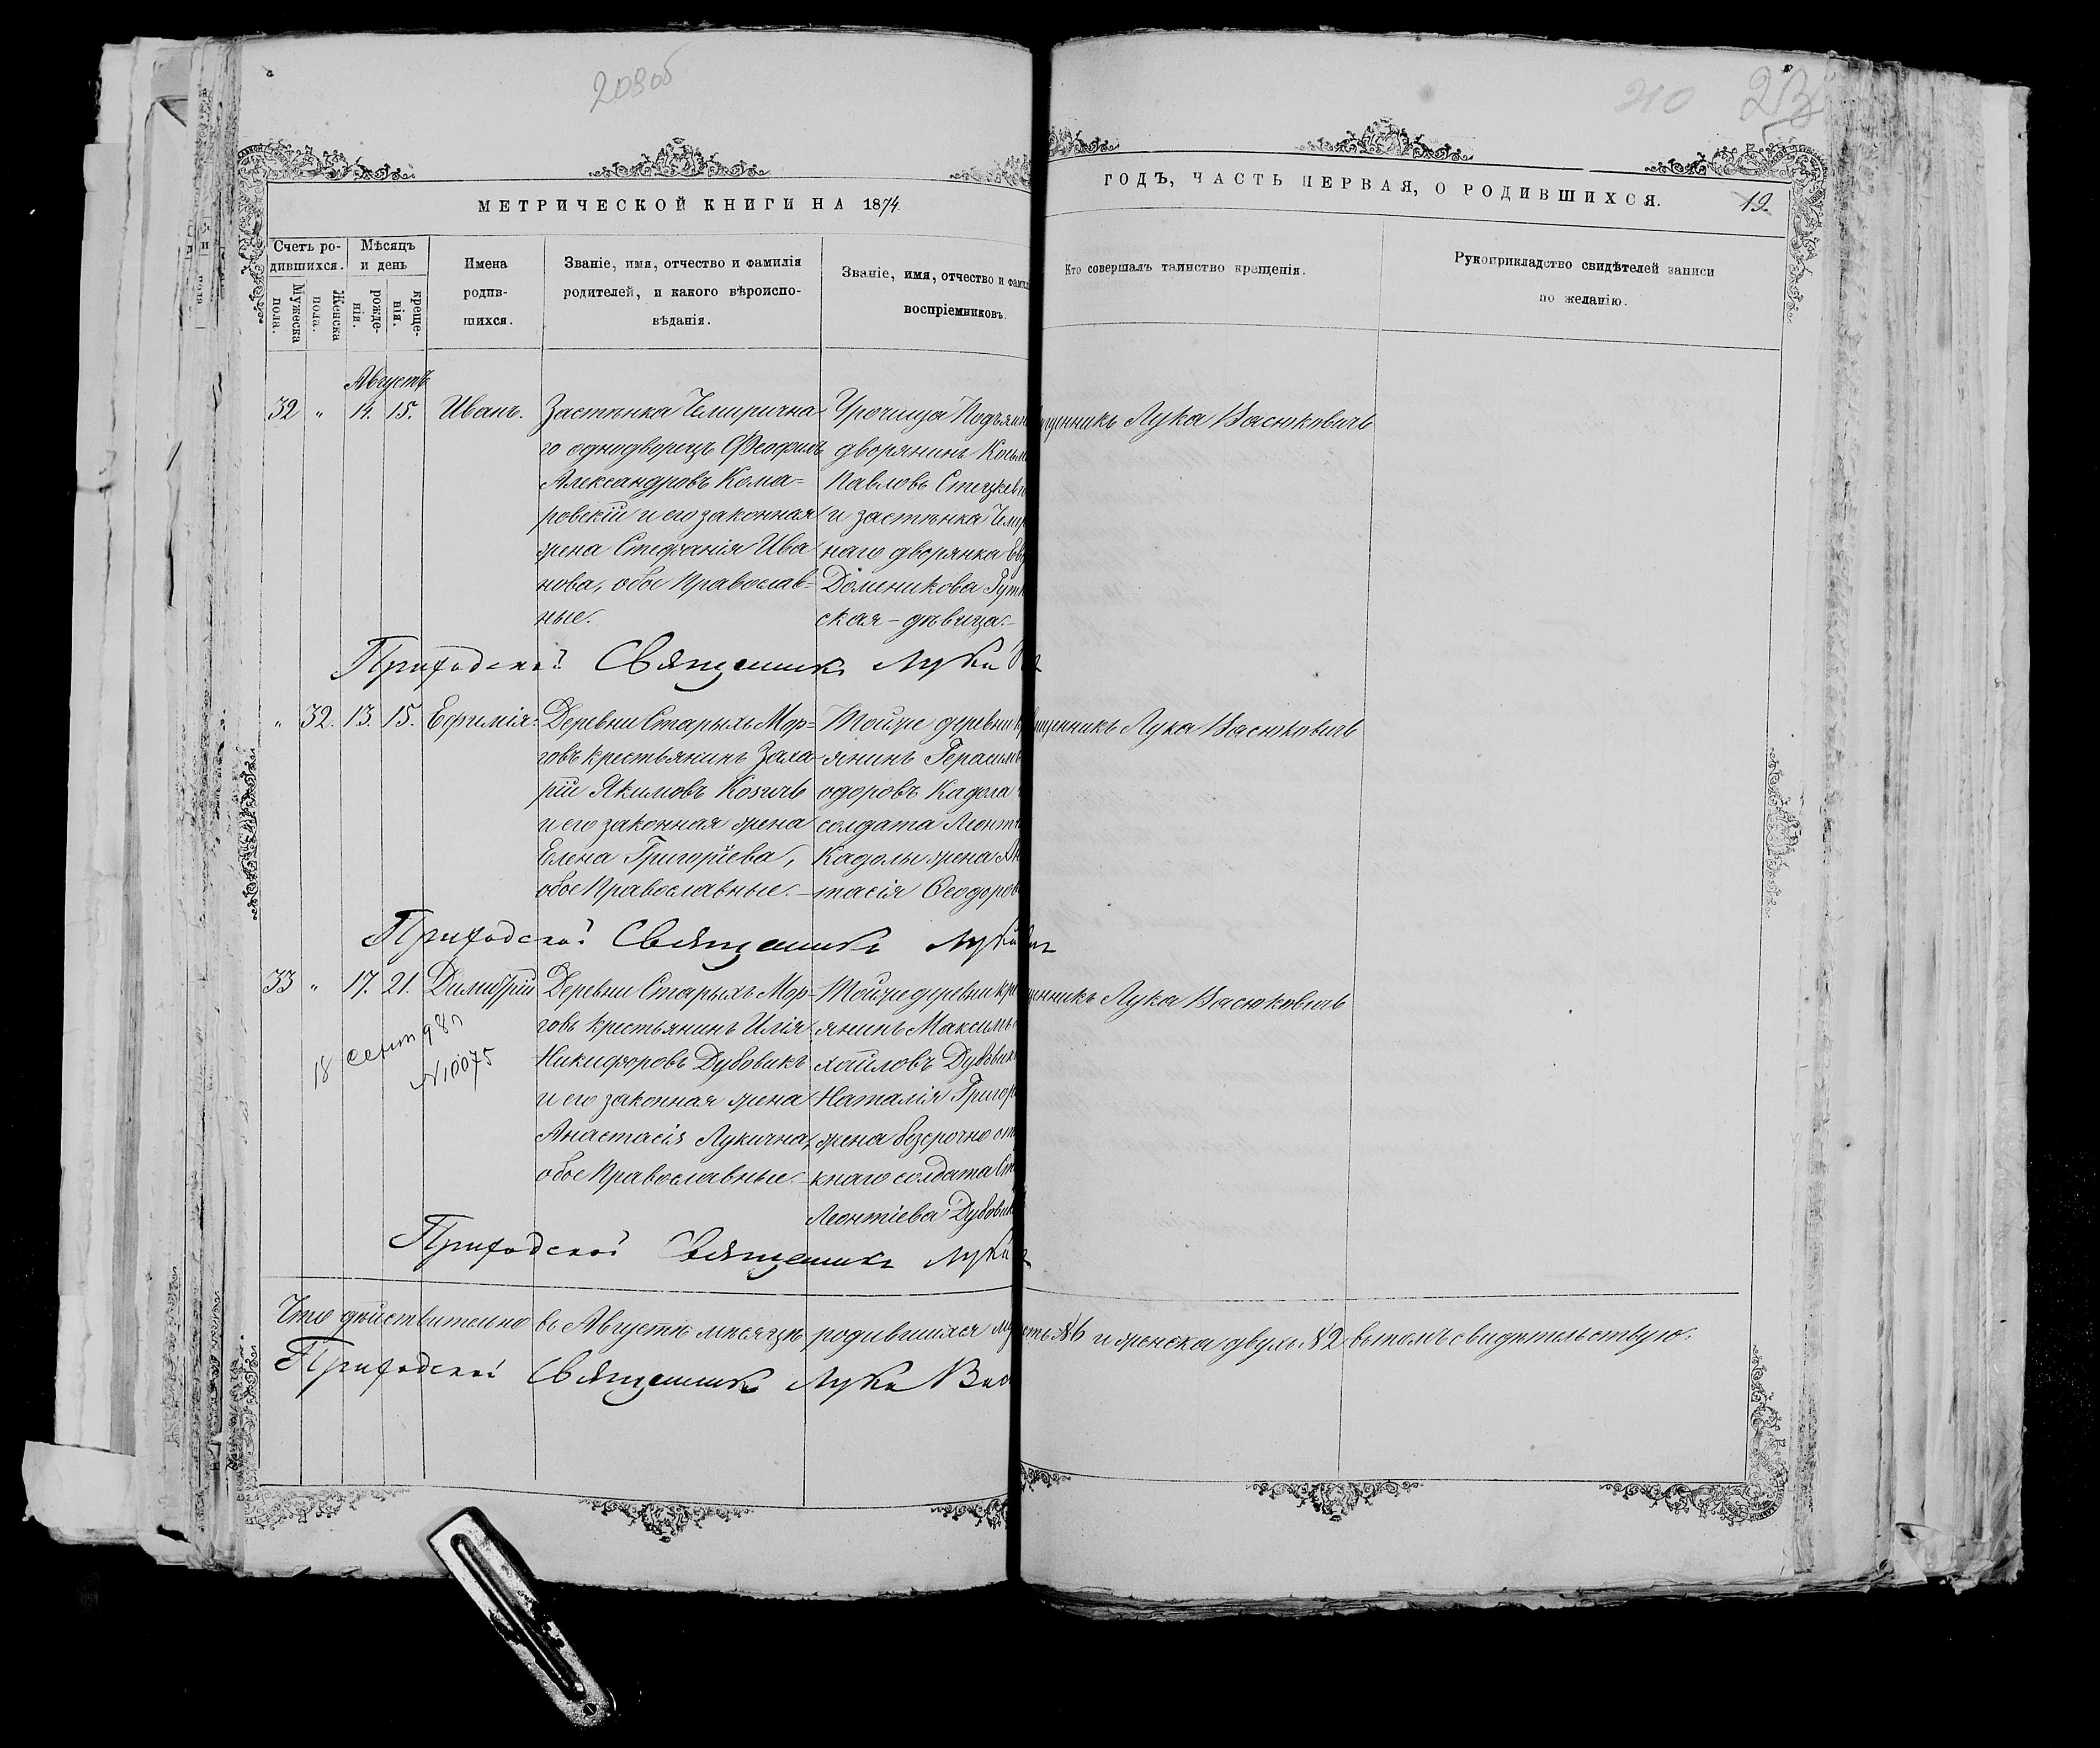 209об
210
МЕТРИЧЕСКОЙ КНИГИ НА 1874.
ГОДЪ, ЧАСТЬ ПЕРВАЯ, О РОДИВШИХСЯ.
19.
Счетъ ро-
дившихся.
Мужеска
пола.
Женска
пола.
Мѣсяцъ
и день
рожде-
нія.
креще-
нія.
Имена
родив-
шихся.
Званіе, имя, отчество и фамилія
родителей, и какого вѣроиспо-
вѣданія.
Званіе, имя, отчество и фамил
воспріемниковъ.
Кто совершалъ таинство крещенія.
Рукоприкладство свидѣтелей записи
по желанію.
Августъ
32 " 14. 15. Иванъ.
Застѣнка Чемирична
го однодворецъ Феофилъ
Александровъ Кома=
ровскій и его законная
жена Стефанія Ива
нова, обое православ=
ные.
Урочища Подъям
дворянинъ Козьм
Павловъ Стецкеви
и застѣнка Чеми
наго дворянка Ев
Доминикова Рут
ская – дѣвица.–
щенникъ Лука Васюковичъ
Приходской Священникъ Лука Ва
" 32. 13. 15. Ефимія.
Деревни Старыхъ Мор=
говъ крестьянинъ Заха
рій Якимовъ Козичъ
и его законная жена
Елена Григорьева,
обое Православные.–
Тойже деревни кр
янинъ Герасимъ
одоровъ Кадола
солдата Леонт
Кадолы жена Ан
тасія Ѳеодоров
щенникъ Лука Васюковичъ
Приходской Священникъ Лука Ва
33 " 17. 21. Димитрій
18 сент 98 г
№10075
Деревни Старыхъ Мор-
говъ крестьянинъ Илія
Никифоровъ Дубовикъ
и его законная жена
Анастасія Лукична,
обое Православные.–
Тойже деревни кре
янинъ Максимъ
хайловъ Дубовик
Наталія Григор
жена безсрочно от
кнаго солдата Ст
Леонтіева Дубовик
щенникъ Лука Васюковичъ
Приходской Священникъ Лука
Что дѣйствительно въ Августѣ мѣсяцѣ родившихся му
сть №6 и женска двухъ №2 вътомъ свидѣтельствую.
Приходской Священникъ Лука Вас